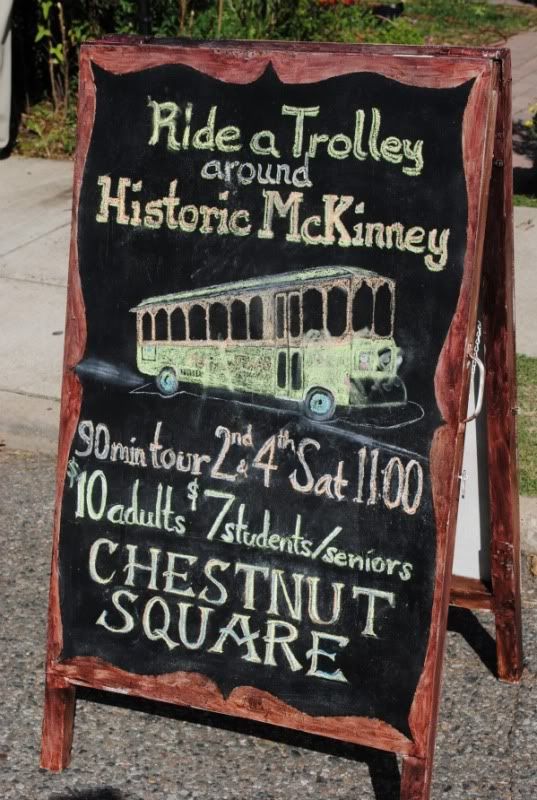 Ride a Trolley
around
Historic McKinney
90 min tour 2nd & 4th Sat 11:00
$10 adults $7 students/seniors
CHESTNUT
SQUARE